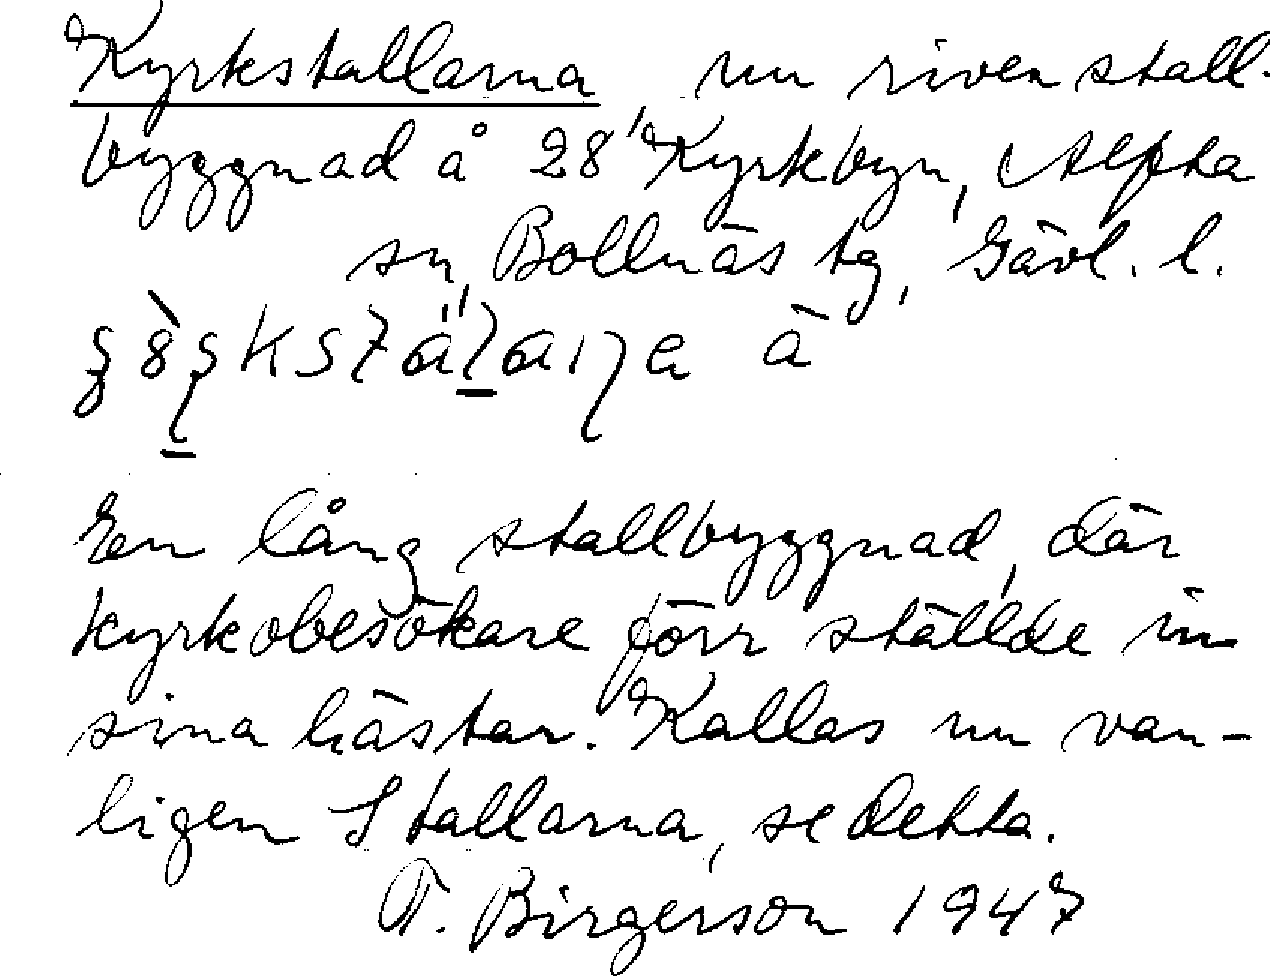 Kyrkstallarna, nu riven stall-
byggnad å 28 Kyrkbyn, Alfta
sn, Bollnäs tg, Gävl. l.
En lång stallbyggnad, där
kyrkobesökare förr ställde in
sina hästar. Kallas nu van-
ligen Stallarna, se detta.
T. Birgerson 1947